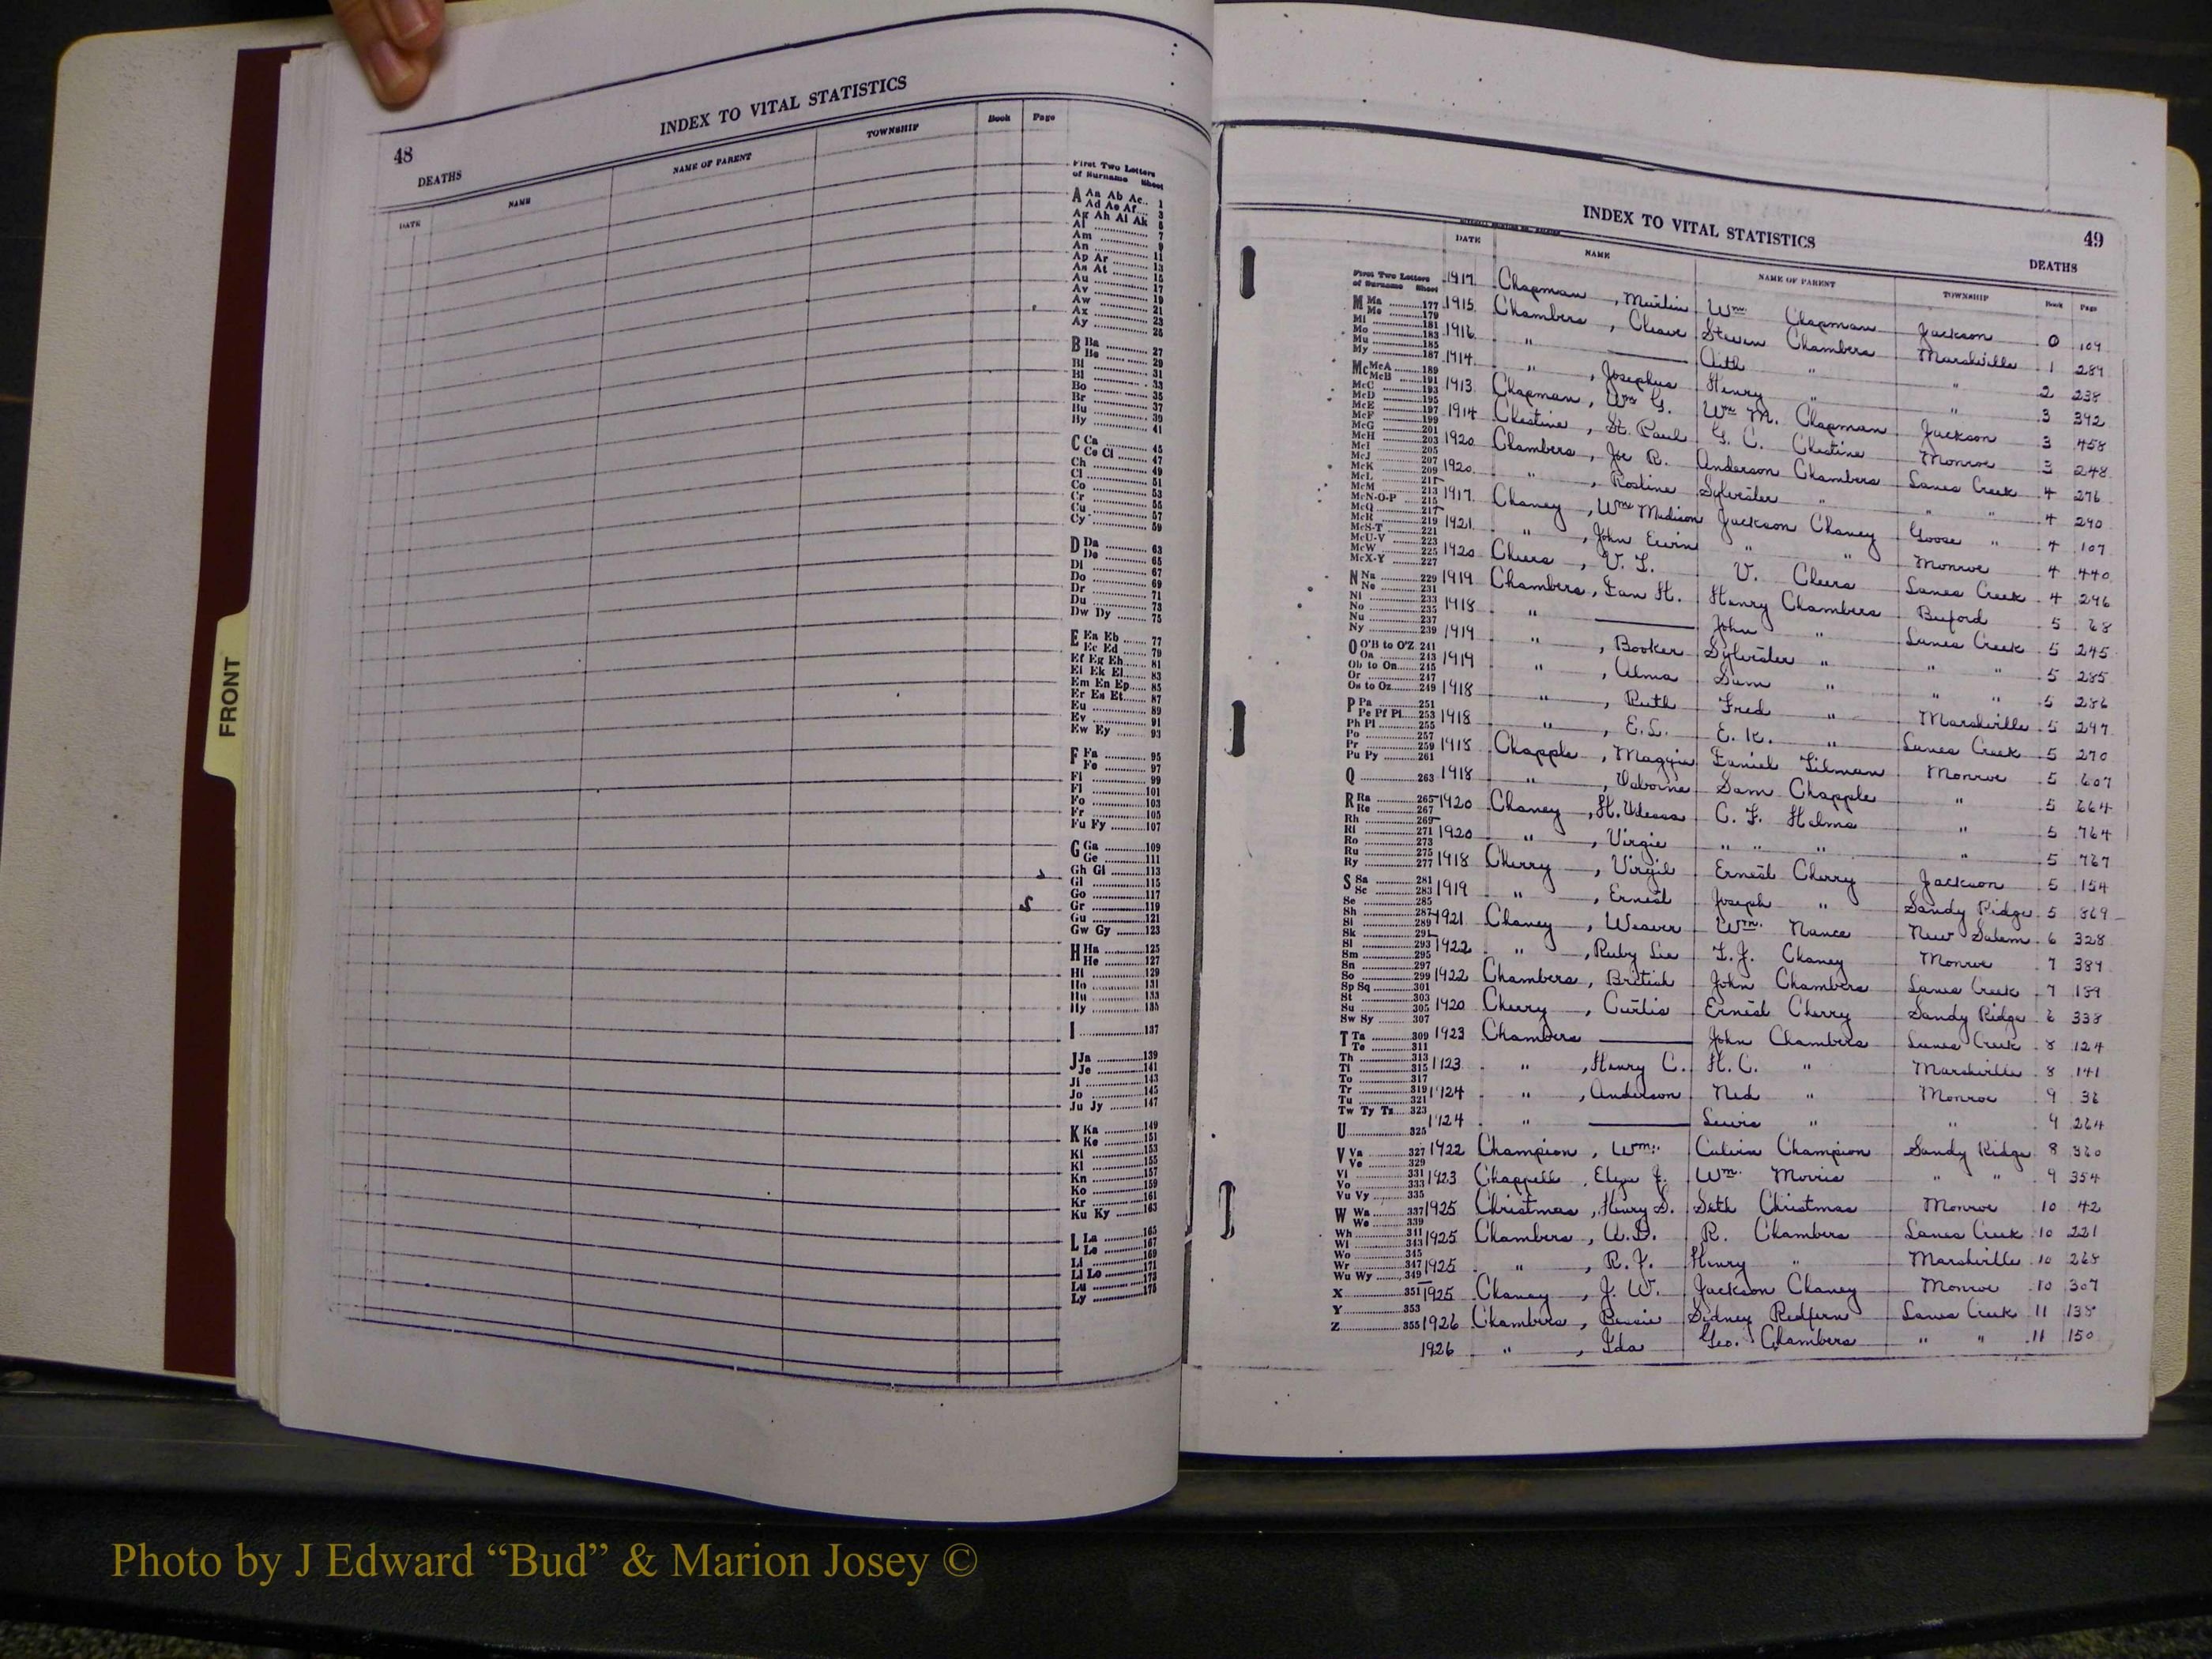 INDEX TO VITAL STATISTICS
48
DEATHS
DATE NAME NAME OF PARENT TOWNSHIP Book Page
First Two Letters
of Surname Sheet
A Aa Ab Ac.. 1
Ad Ae Af.... 3
Ag Ah Ai Ak 5
Al .......... 7
Am .......... 9
An .......... 11
Ap Ar .......... 13
As At .......... 15
Au .......... 17
Av .......... 19
Aw .......... 21
Ax .......... 23
Ay .......... 25
B Ba .......... 27
Be .......... 29
Bi .......... 31
Bl .......... 33
Bo .......... 35
Br .......... 37
Bu .......... 39
By .......... 41
C Ca .......... 45
Ce Ci .......... 47
Ch .......... 49
Cl .......... 51
Co .......... 53
Cr .......... 55
Cu .......... 57
Cy .......... 59
D Da .......... 63
De .......... 65
Di .......... 67
Do .......... 69
Dr .......... 71
Du .......... 73
Dw Dy .......... 75
E Ea Eb .......... 77
Ec Ed .......... 79
Ef Eg Eh...... 81
Ei Ek El...... 83
Em En Ep..... 85
Er Es Et...... 87
Eu .......... 89
Ev .......... 91
Ew Ey .......... 93
F Fa .......... 95
Fe .......... 97
Fi .......... 99
Fl .......... 101
Fo .......... 103
Fr .......... 105
Fu Fy .......... 107
G Ga .......... 109
Ge .......... 111
Gh Gi .......... 113
Gl .......... 115
Go .......... 117
Gr .......... 119
Gu .......... 121
Gw Gy .......... 123
H Ha .......... 125
He .......... 127
Hi .......... 129
Ho .......... 131
Hu .......... 133
Hy .......... 135
I .......... 137
J Ja .......... 139
Je .......... 141
Ji .......... 143
Jo .......... 145
Ju Jy .......... 147
K Ka .......... 149
Ke .......... 151
Ki .......... 153
Kl .......... 155
Kn .......... 157
Ko .......... 159
Kr .......... 161
Ku Ky .......... 163
L La .......... 165
Le .......... 167
Li .......... 169
Ll Lo .......... 171
Lu .......... 173
Ly .......... 175
FRONT
INDEX TO VITAL STATISTICS
49
DEATHS
DATE NAME NAME OF PARENT TOWNSHIP Book Page
First Two Letters
of Surname Sheet
M Ma .......... 177
Me .......... 179
Mi .......... 181
Mo .......... 183
Mu .......... 185
My .......... 187
Mc McA .......... 189
McB .......... 191
McC .......... 193
McD .......... 195
McE .......... 197
McF .......... 199
McG .......... 201
McH .......... 203
McI .......... 205
McJ .......... 207
McK .......... 209
McL .......... 211
McM .......... 213
McN-O-P .......... 215
McQ .......... 217
McR .......... 219
McS-T .......... 221
McU-V .......... 223
McW .......... 225
McX-Y .......... 227
N Na .......... 229
Ne .......... 231
Ni .......... 233
No .......... 235
Nu .......... 237
Ny .......... 239
O O'B to O'Z. 241
Oa .......... 243
Ob to On...... 245
Or .......... 247
Os to Oz...... 249
P Pa .......... 251
Pe Pf Pi.... 253
Ph Pl .......... 255
Po .......... 257
Pr .......... 259
Pu Py .......... 261
Q .......... 263
R Ra .......... 265
Re .......... 267
Rh .......... 269
Ri .......... 271
Ro .......... 273
Ru .......... 275
Ry .......... 277
S Sa .......... 281
Sc .......... 283
Se .......... 285
Sh .......... 287
Si .......... 289
Sk .......... 291
Sl .......... 293
Sm .......... 295
Sn .......... 297
So .......... 299
Sp Sq .......... 301
St .......... 303
Su .......... 305
Sw Sy .......... 307
T Ta .......... 309
Te .......... 311
Th .......... 313
Ti .......... 315
To .......... 317
Tr .......... 319
Tu .......... 321
Tw Ty Tz.... 323
U .......... 325
V Va .......... 327
Ve .......... 329
Vi .......... 331
Vo .......... 333
Vu Vy .......... 335
W Wa .......... 337
We .......... 339
Wh .......... 341
Wi .......... 343
Wo .......... 345
Wr .......... 347
Wu Wy .......... 349
X .......... 351
Y .......... 353
Z .......... 355
1917 Chapman, Murlin Wm. Chapman Jackson 0 109
1915 Chambers, Cleave Steven Chambers Marshville 1 289
1916 " —— " " 2 238
1914 " , Josephus Henry " " 3 392
1913 Chapman, Wm G. Wm M. Chapman Jackson 3 458
1914 Chestine, St. Paul G. C. Chestine Monroe 3 248
1920 Chambers, Joe R. Anderson Chambers Lanes Creek 4 276
1920 " , Rosline Sylvester " " " 4 290
1917 Chaney, Wm Madison Jackson Chaney Goose " 4 107
1921 " , John Ervin " " Monroe 4 440
1920 Cheers, V. L. V. Cheers Lanes Creek 4 296
1919 Chambers, Dan H. Henry Chambers Buford 5 68
1918 " —— John " Lanes Creek 5 245
1919 " , Booker Sylvester " " " 5 285
1919 " , Alma Sam " " " 5 286
1918 " , Ruth Fred " Marshville 5 297
1918 " , E.L. E. K. " Lanes Creek 5 270
1918 Chapple, Maggie Daniel Tilman Monroe 5 607
1918 " , Osborne Sam Chapple " 5 664
1920 Chaney, H. Odessa C. F. Helms " 5 764
1920 " , Virgie " " " " 5 767
1918 Cherry, Virgil Ernest Cherry Jackson 5 154
1919 " , Ernest Joseph " Sandy Ridge 5 869
1921 Chaney, Weaver Wm. Nance New Salem 6 328
1922 " , Ruby Lee L. J. Chaney Monroe 7 389
1922 Chambers, British John Chambers Lanes Creek 7 189
1920 Cherry, Curtis Ernest Cherry Sandy Ridge 6 338
1923 Chambers —— John Chambers Lanes Creek 8 124
1923 " , Henry C. H. C. " Marshville 8 141
1924 " , Anderson Ned " Monroe 9 36
1924 " —— Lewis " " 9 264
1922 Champion, Wm. Calvin Champion Sandy Ridge 8 360
1923 Chappelle, Eliza J. Wm. Morris " " 9 354
1925 Christmas, Henry S. Seth Christmas Monroe 10 42
1925 Chambers, U.D. R. Chambers Lanes Creek 10 221
1925 " , R. F. Henry " Marshville 10 268
1925 Chaney, J. W. Jackson Chaney Monroe 10 307
1926 Chambers, Bessie Sidney Redfern Lanes Creek 11 138
1926 " , Ida Geo. Chambers " " 11 150
Photo by J Edward “Bud” & Marion Josey ©